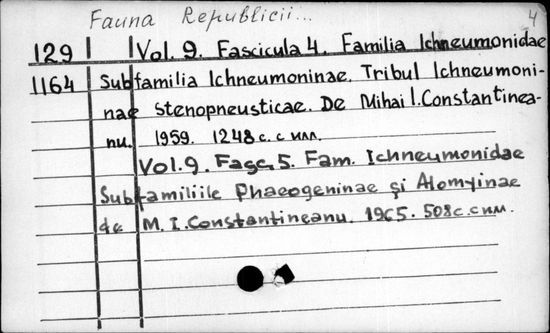 Fauna Republicii... 4
129 Vol. 9. Fascicula 4. Familia Ichneumonidae
1164 Subfamilia Ichneumoninae. Tribul Ichneumoni-
nae Stenopneusticae. De Mihai I. Constantinea-
nu. 1959. 1248 с. с илл.
Vol. 9. Fasc. 5. Fam. Ichneumonidae
Subfamiliile Phaeogeninae și Alomyinae
de M. I. Constantineanu. 1965. 508 с. с илл.